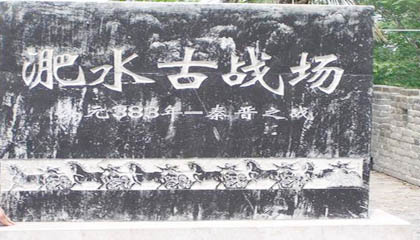 淝水古战场
公元383年—秦晋之战